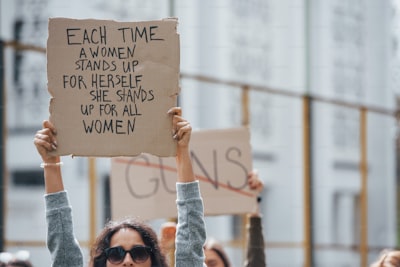 EACH TIME
A WOMEN
STANDS UP
FOR HERSELF
SHE STANDS
UP FOR ALL
WOMEN
GUNS